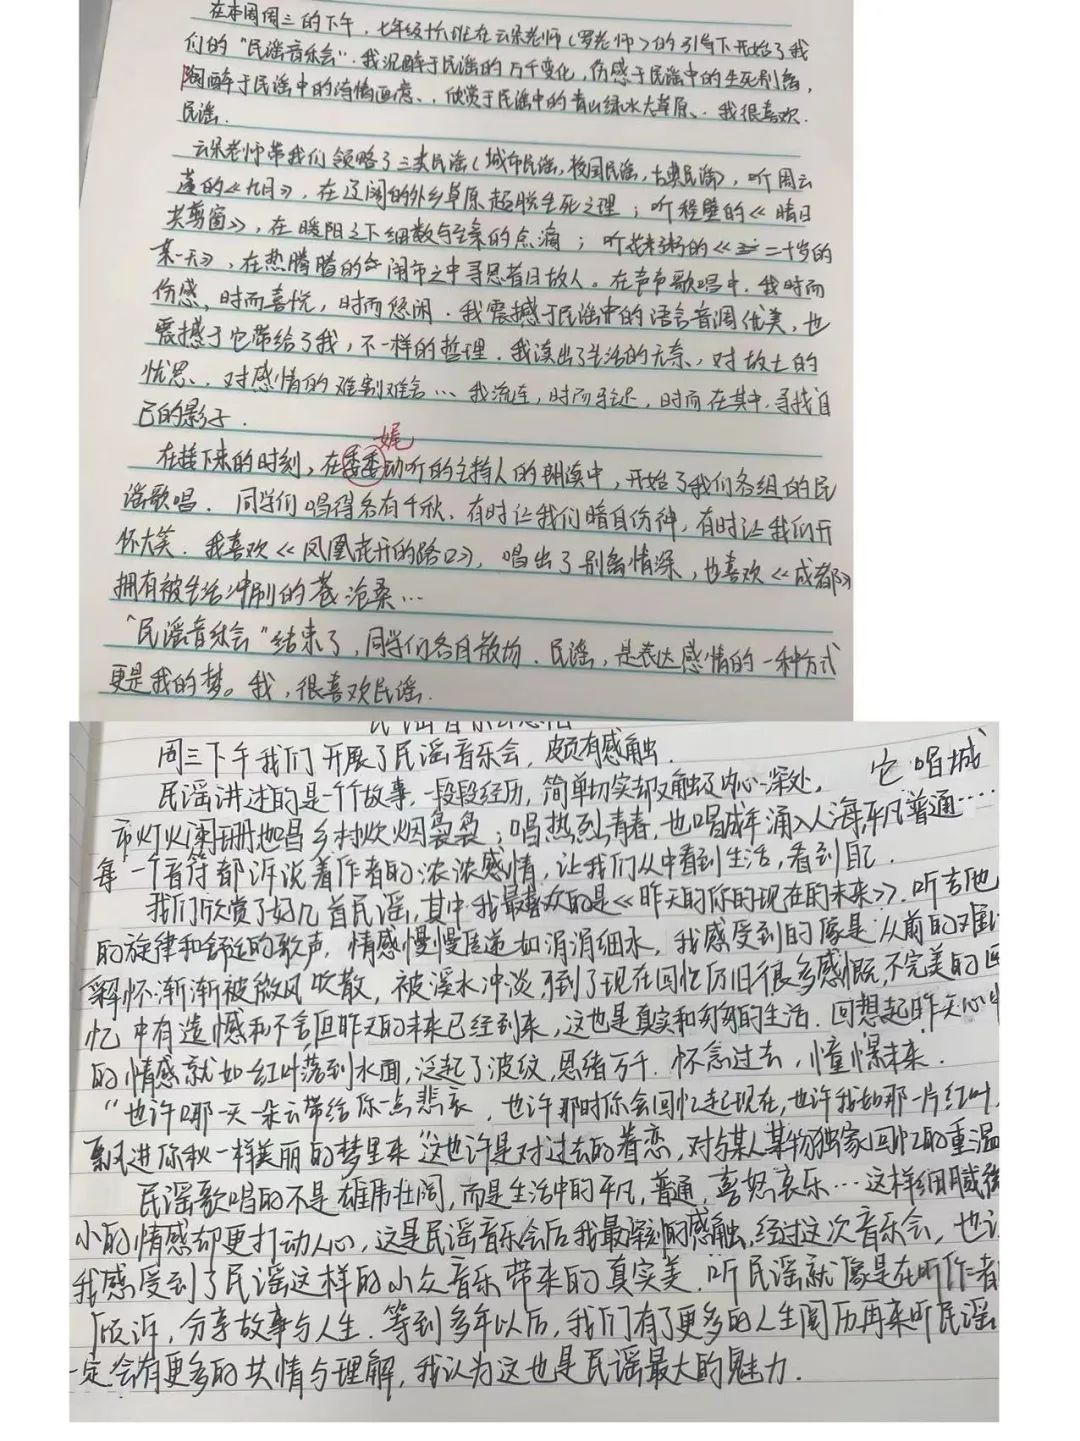 在本周周三的下午，七年级十八班在云朵老师(罗老师)的引导下开始了我
们的“民谣音乐会”. 我沉醉于民谣的万千变化, 伤感于民谣中的生死别离,
陶醉于民谣中的诗情画意、, 欣赏于民谣中的青山绿水大草原、. 我很喜欢
民谣.
云朵老师带我们领略了三类民谣(城市民谣, 校园民谣, 古典民谣), 听周云
蓬的《九月》, 在辽阔的外乡草原超脱生死之理；听程璧的《晴日
共剪窗》, 在暖阳之下细数与至亲的点滴；听花粥的《二十岁的
某一天》, 在热腾腾的闹市之中寻思昔日故人。在声声歌唱中. 我时而
伤感, 时而喜悦, 时而悠闲. 我震撼于民谣中的语言音调优美, 也
震撼于它带给了我, 不一样的哲理. 我读出了生活的无奈、对故土的
忧思、对感情的难割难舍… 我流连, 时而, 时而在其中, 寻找自
己的影子.
娓
在接下来的时刻, 在委委动听的主持人的朗读中, 开始了我们各组的民
谣歌唱. 同学们唱得各有千秋. 有时让我们暗自伤神, 有时让我们开
怀大笑. 我喜欢《凤凰花开的路口》, 唱出了别离情深, 也喜欢《成都》
拥有被生活冲刷的苍沧桑…
“民谣音乐会”结束了, 同学们各自散场. 民谣, 是表达感情的一种方式
更是我的梦。我, 很喜欢民谣.
周三下午我们开展了民谣音乐会, 颇有感触.
民谣讲述的是一个个故事, 一段段经历, 简单切实却又触及内心深处, 它唱城
市灯火阑珊也唱乡村炊烟袅袅；唱热烈青春, 也唱成年涌入人海, 平凡普通……
每一个音符都诉说着作者的浓浓感情, 让我们从中看到生活, 看到自己.
我们欣赏了好几首民谣, 其中我最喜欢的是《昨天的你的现在的未来》. 听吉他
的旋律和舒适的歌声, 情感慢慢传递如涓涓细水, 我感受到的像是从前的难以
释怀渐渐被微风吹散, 被溪水冲淡, 到了现在回忆仍旧很多感慨, 不完美的回
忆中有遗憾和不舍, 但昨天的未来已经到来, 这也是真实和匆匆的生活. 回想起昨天心中
的情感就如红叶落到水面, 泛起了波纹, 思绪万千. 怀念过去, 憧憬未来.
“也许哪一天一朵云带给你一点悲哀, 也许那时你会回忆起现在, 也许我如那一片红叶,
飘进你秋一样美丽的梦里来”这也许是对过去的眷恋, 对与某人某物独家回忆的重温
民谣歌唱的不是雄伟壮阔, 而是生活中的平凡, 普通, 喜怒哀乐…这样细腻微
小的情感却更打动人心, 这是民谣音乐会后我最深刻的感触, 经过这次音乐会, 也让
我感受到了民谣这样的小众音乐带来的真实美. 听民谣就像是在听作者
倾诉, 分享故事与人生. 等到多年以后, 我们有了更多的人生阅历再来听民谣
一定会有更多的共情与理解, 我认为这也是民谣最大的魅力.